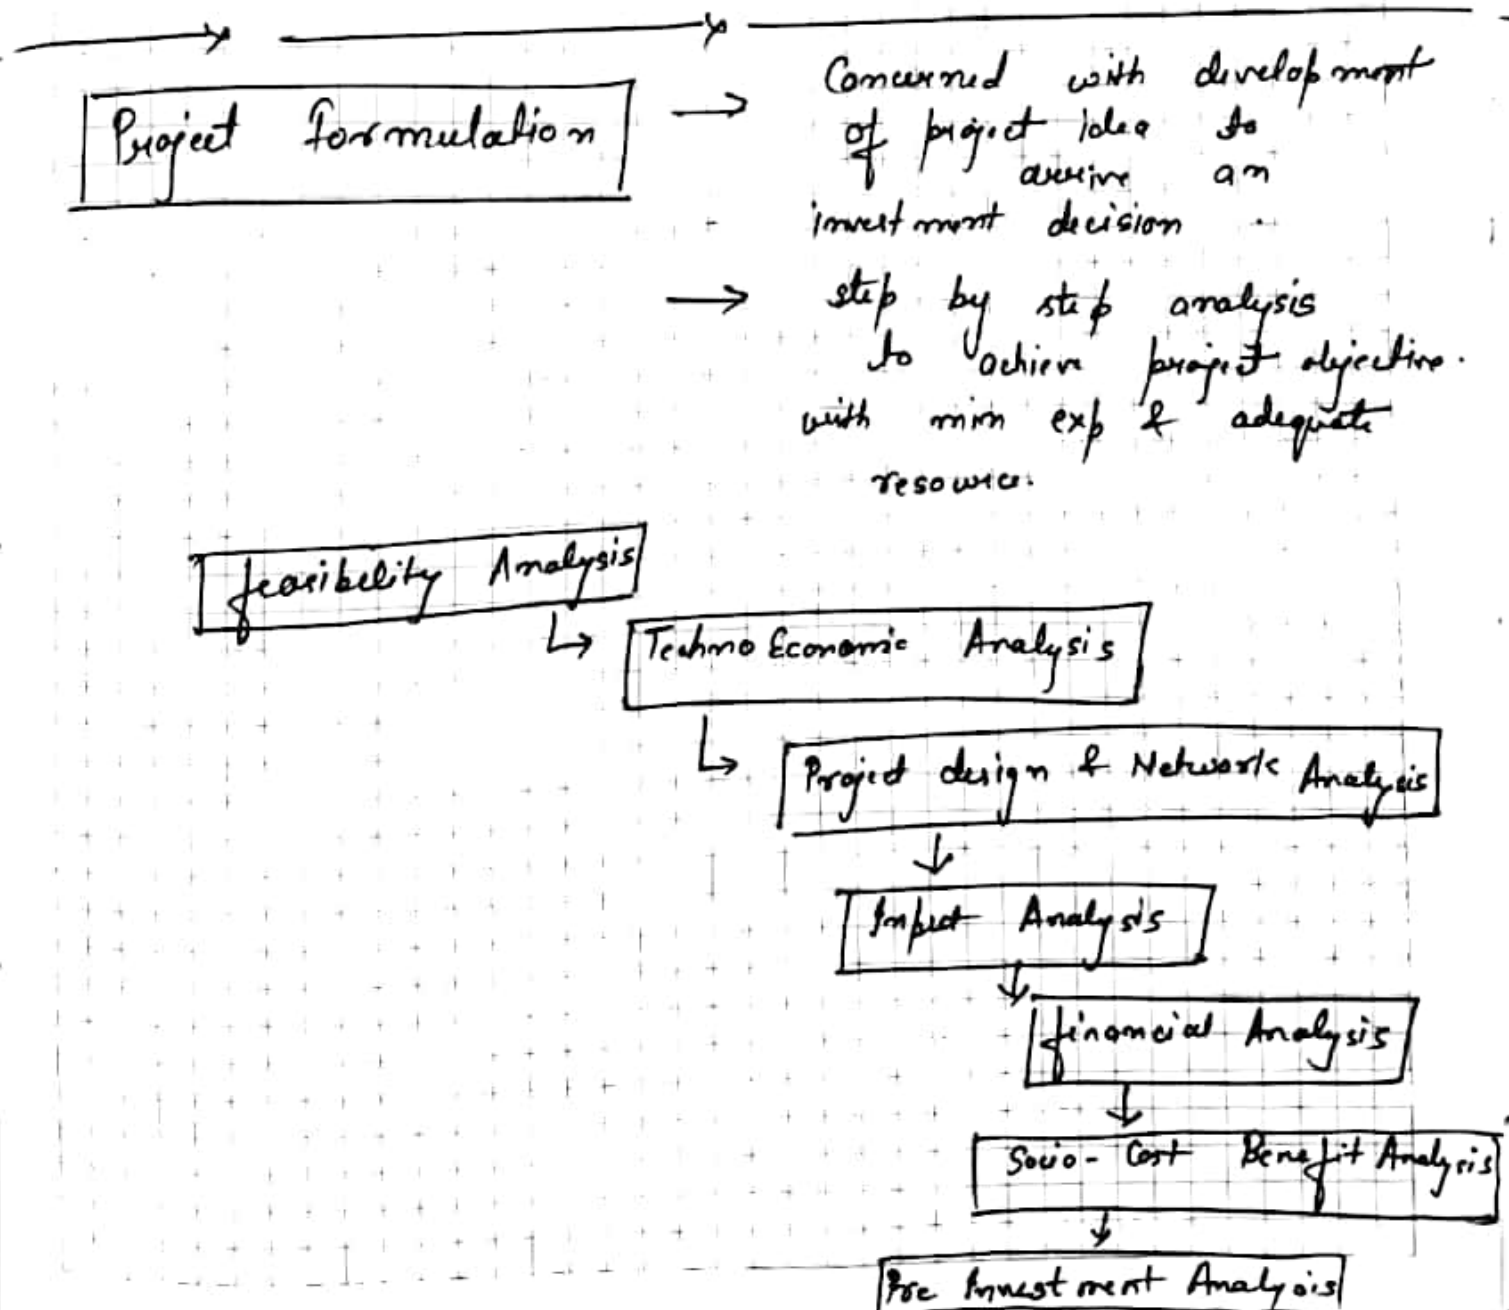 Project formulation
Concerned with development
of project idea to
arrive an
investment decision
step by step analysis
to achieve project objective.
with min exp & adequate
resource.
feasibility Analysis
Techno Economic Analysis
Project design & Network Analysis
Input Analysis
financial Analysis
Socio-Cost Benefit Analysis
Pre Investment Analysis